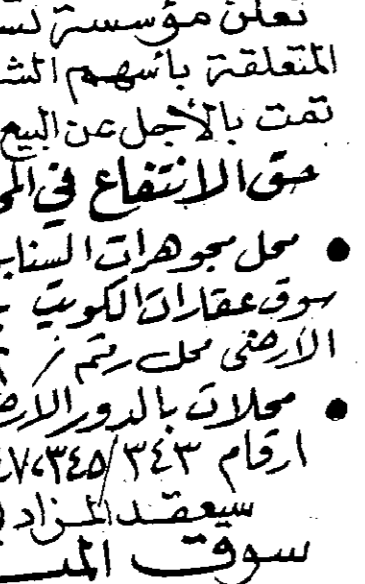 تعلن مؤسسة تس
المتعلقة بأسهم الش
تمت بالأجل عن البيع
حق الانتفاع في الم
● محل مجوهرات السناب
سوق عقارات الكويت
الأرضي محل رقم /
● محلات بالدور الأرض
ارقام ٣٤٣/٣٤٥،٤٧
سيعقد المزاد
سوق الم